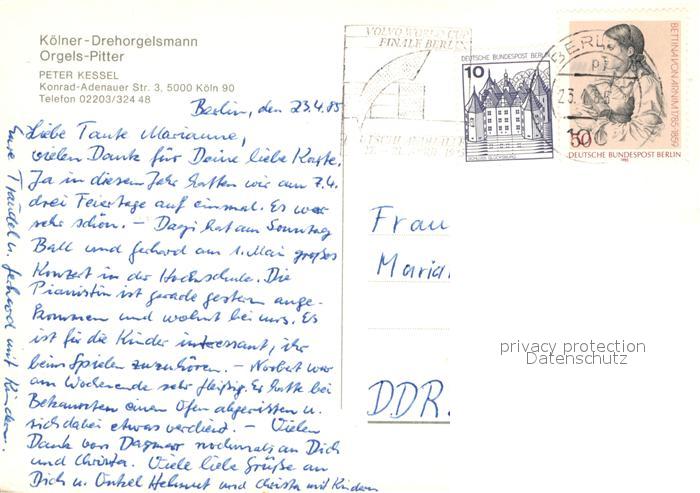 Kölner-Drehorgelsmann
Orgels-Pitter
PETER KESSEL
Konrad-Adenauer Str. 3, 5000 Köln 90
Telefon 02203/324 48
VOLVO WORLD CUP
FINALE BERLIN
10
DEUTSCHE BUNDESPOST BERLIN
SCHLOSS GLÜCKSBURG
BERLIN
23.4.85
BETTINA VON ARNIM 1785-1859
50
DEUTSCHE BUNDESPOST BERLIN
1985
Berlin, den 23.4.85
Liebe Tante Marianne,
vielen Dank für Deine liebe Karte.
Ja in diesem Jahr hatten wir am 7.4.
drei Feiertage auf einmal. Es war
sehr schön. – Dagi hat am Sonntag
Ball und Gerhard am 1. Mai großes
Konzert in der Hochschule. Die
Pianistin ist gerade gestern ange-
kommen und wohnt bei uns. Es
ist für die Kinder interessant, ihr
beim Spielen zuzuhören. – Norbert war
am Wochenende sehr fleißig. Er hatte bei
Bekannten einen Ofen abgerissen u.
sich dabei etwas verdient. – Vielen
Dank von Dagmar nochmals an Dich
und Christa. Viele liebe Grüße an
Dich u. Onkel Helmut und Christa mit Kindern
Eure Traudel u. Gerhard mit Kindern.
Frau
Maria
DDR.
privacy protection
Datenschutz